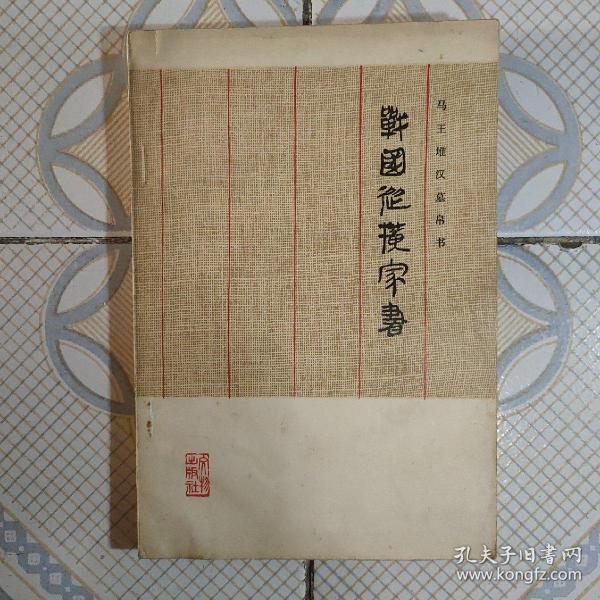 马王堆汉墓帛书
戰國從橫家書
文物
出版社
孔夫子旧书网
www.kongfz.com